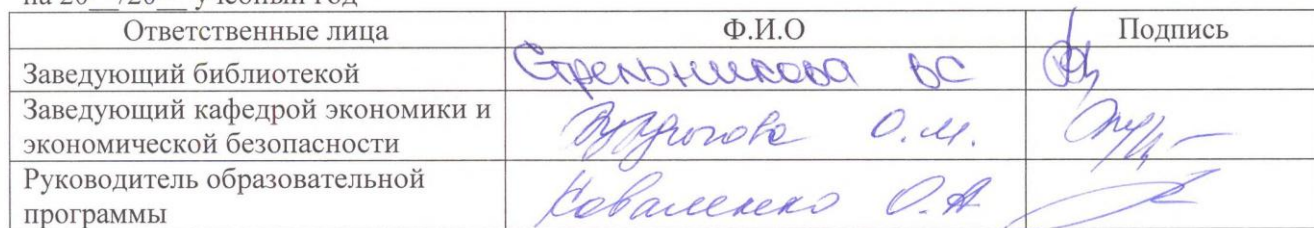 на 20__/20__ учебный год
Ответственные лица Ф.И.О Подпись
Заведующий библиотекой Стрельникова ВС
Заведующий кафедрой экономики и
экономической безопасности О.М.
Руководитель образовательной
программы Коваленко О.А